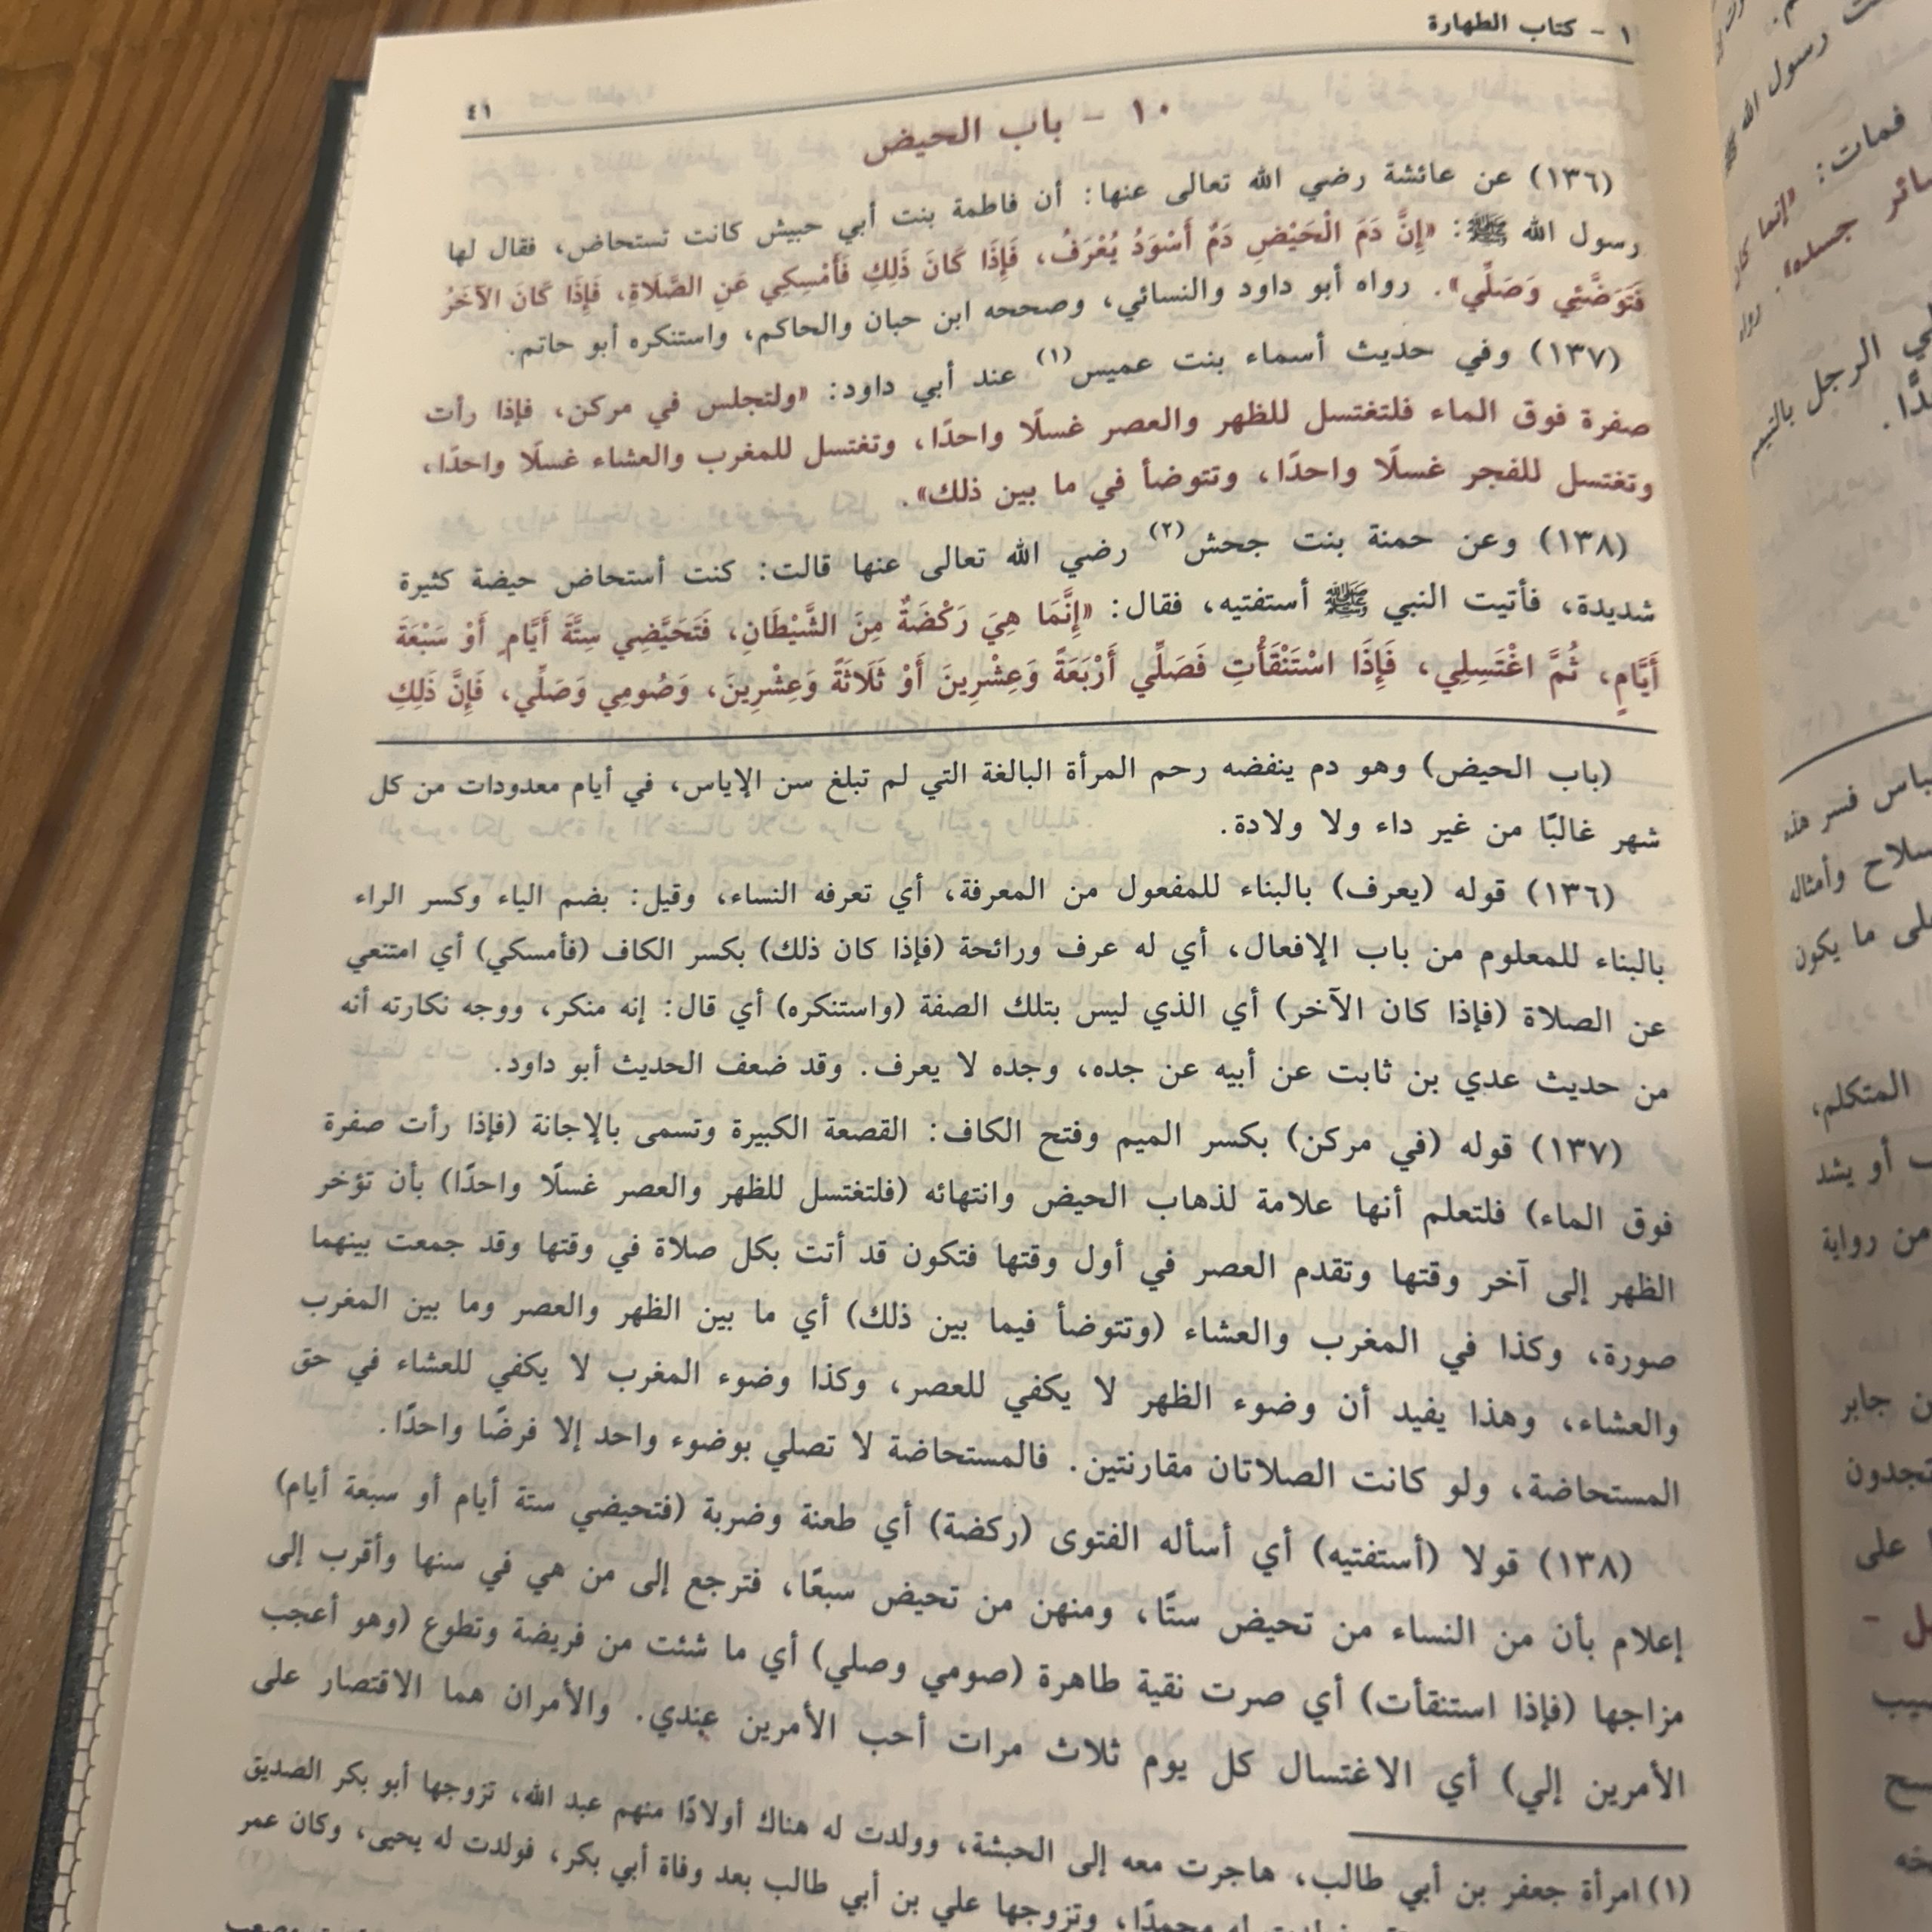 ١ - كتاب الطهارة
٤١
١٠ - باب الحيض
(١٣٦) عن عائشة رضي الله تعالى عنها: أن فاطمة بنت أبي حبيش كانت تستحاض، فقال لها
رسول الله ﷺ: «إِنَّ دَمَ الْحَيْضِ دَمٌ أَسْوَدُ يُعْرَفُ، فَإِذَا كَانَ ذَلِكِ فَأَمْسِكِي عَنِ الصَّلَاةِ، فَإِذَا كَانَ الآخَرُ
فَتَوَضَّئِي وَصَلِّي». رواه أبو داود والنسائي، وصححه ابن حبان والحاكم، واستنكره أبو حاتم.
(١٣٧) وفي حديث أسماء بنت عميس(١) عند أبي داود: «ولتجلس في مركن، فإذا رأت
صفرة فوق الماء فلتغتسل للظهر والعصر غسلًا واحدًا، وتغتسل للمغرب والعشاء غسلًا واحدًا،
وتغتسل للفجر غسلًا واحدًا، وتتوضأ في ما بين ذلك».
(١٣٨) وعن حمنة بنت جحش(٢) رضي الله تعالى عنها قالت: كنت أستحاض حيضة كثيرة
شديدة، فأتيت النبي ﷺ أستفتيه، فقال: «إِنَّمَا هِيَ رَكْضَةٌ مِنَ الشَّيْطَانِ، فَتَحَيَّضِي سِتَّةَ أَيَّامٍ أَوْ سَبْعَةَ
أَيَّامٍ، ثُمَّ اغْتَسِلِي، فَإِذَا اسْتَنْقَأْتِ فَصَلِّي أَرْبَعَةً وَعِشْرِينَ أَوْ ثَلَاثَةً وَعِشْرِينَ، وَصُومِي وَصَلِّي، فَإِنَّ ذَلِكِ
(باب الحيض) وهو دم ينفضه رحم المرأة البالغة التي لم تبلغ سن الإياس، في أيام معدودات من كل
شهر غالبًا من غير داء ولا ولادة.
(١٣٦) قوله (يعرف) بالبناء للمفعول من المعرفة، أي تعرفه النساء، وقيل: بضم الياء وكسر الراء
بالبناء للمعلوم من باب الإفعال، أي له عرف ورائحة (فإذا كان ذلك) بكسر الكاف (فأمسكي) أي امتنعي
عن الصلاة (فإذا كان الآخر) أي الذي ليس بتلك الصفة (واستنكره) أي قال: إنه منكر، ووجه نكارته أنه
من حديث عدي بن ثابت عن أبيه عن جده، وجده لا يعرف. وقد ضعف الحديث أبو داود.
(١٣٧) قوله (في مركن) بكسر الميم وفتح الكاف: القصعة الكبيرة وتسمى بالإجانة (فإذا رأت صفرة
فوق الماء) فلتعلم أنها علامة لذهاب الحيض وانتهائه (فلتغتسل للظهر والعصر غسلًا واحدًا) بأن تؤخر
الظهر إلى آخر وقتها وتقدم العصر في أول وقتها فتكون قد أتت بكل صلاة في وقتها وقد جمعت بينهما
صورة، وكذا في المغرب والعشاء (وتتوضأ فيما بين ذلك) أي ما بين الظهر والعصر وما بين المغرب
والعشاء، وهذا يفيد أن وضوء الظهر لا يكفي للعصر، وكذا وضوء المغرب لا يكفي للعشاء في حق
المستحاضة، ولو كانت الصلاتان مقارنتين. فالمستحاضة لا تصلي بوضوء واحد إلا فرضًا واحدًا.
(١٣٨) قولا (أستفتيه) أي أسأله الفتوى (ركضة) أي طعنة وضربة (فتحيضي ستة أيام أو سبعة أيام)
إعلام بأن من النساء من تحيض ستًا، ومنهن من تحيض سبعًا، فترجع إلى من هي في سنها وأقرب إلى
مزاجها (فإذا استنقأت) أي صرت نقية طاهرة (صومي وصلي) أي ما شئت من فريضة وتطوع (وهو أعجب
الأمرين إلي) أي الاغتسال كل يوم ثلاث مرات أحب الأمرين عندي. والأمران هما الاقتصار على
(١) امرأة جعفر بن أبي طالب، هاجرت معه إلى الحبشة، وولدت له هناك أولادًا منهم عبد الله، تزوجها أبو بكر الصديق
محمدًا، وتزوجها علي بن أبي طالب بعد وفاة أبي بكر، فولدت له يحيى، وكان عمر
رسول الله
فمات: «إنما كان
سائر جسده». رواه
الرجل بالتيمم
فسر هذه
سلاح وأمثاله
على ما يكون
المتكلم،
أو يشد
من رواية
جابر
على